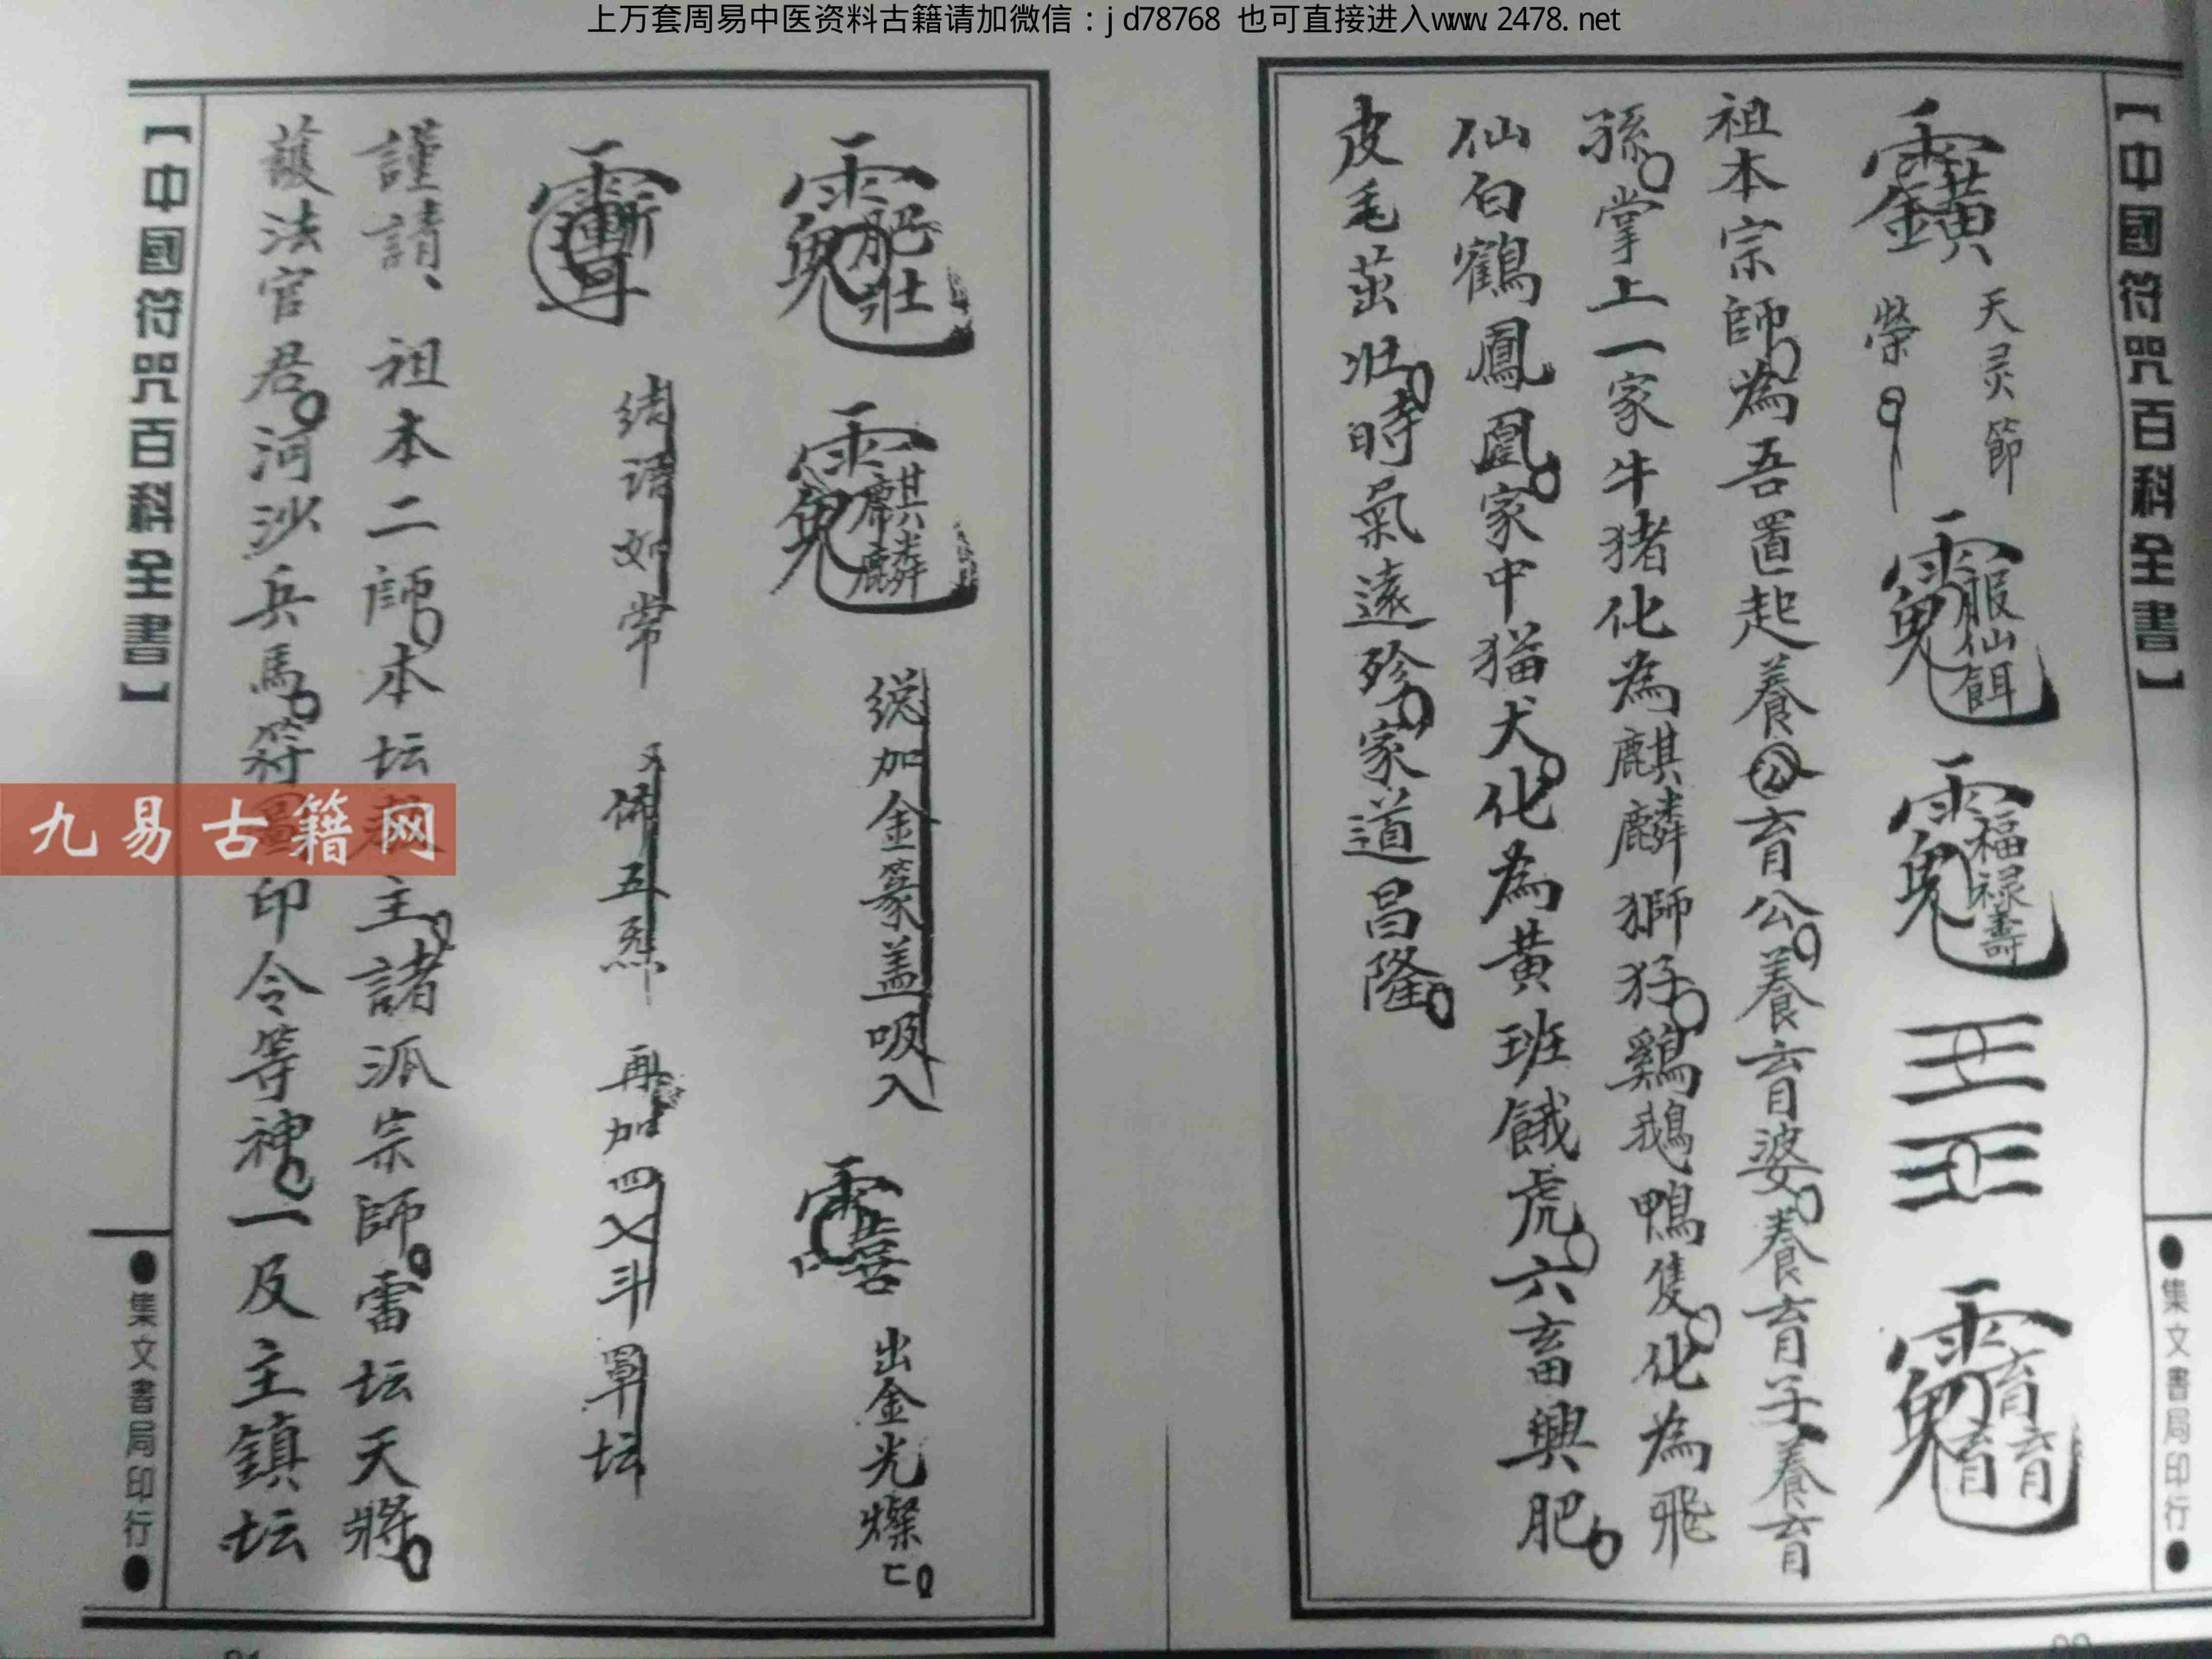 上万套周易中医资料古籍请加微信：jd78768 也可直接进入www.2478.net
【中國符咒百科全書】
●集文書局印行●
天灵節
榮
服仙餌
福禄壽
育育育
祖本宗師為吾置起養育公養育婆養育子養育
孫掌上一家牛猪化為麒麟獅㹥鷄鵝鴨隻化為飛
仙白鶴鳳凰家中猫犬化為黄班餓虎六畜興肥
皮毛茁壯時氣遠殄家道昌隆
肥壮
麒麟
総加金篆盖吸入
出金光燦
如常
五 再加四 斗罩坛
謹請祖本二師本坛 主諸派宗師雷坛天將
護法官君河沙兵馬符 印令等神一及主鎮坛
【中國符咒百科全書】
●集文書局印行●
九易古籍网